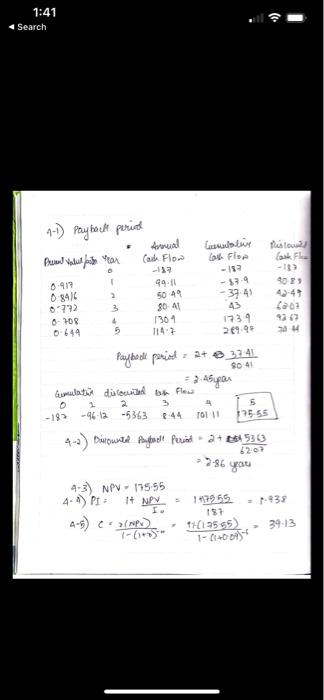 1:41
◄ Search
4-1) Payback period
Annual Cumulative Discounted
Present Value factor Year Cash Flow Cash Flow Cash Flow
0 -187 -187 -187
0.917 1 99.11 -87.9 90.89
0.8416 2 50.49 -37.41 42.49
0.772 3 80.41 43 62.07
0.708 4 130.9 173.9 92.67
0.649 5 114.7
Payback period = 2+ 37.41
80.41
= 2.45 years
Cumulative discounted cash flow
0 1 2 3 4 5
-187 -96.12 -53.63 8.44 101.11 175.55
4-2) Discounted Payback Period = 2+ 53.63
62.07
= 2.86 years
4-3) NPV = 175.55
4-4) PI = 1+ NPV = 1+175.55 = 1.938
I₀ 187
4-5) C = r(NPV) = (175.55) = 39.13
1-(1+r)⁻ⁿ 1-(1+0.09)